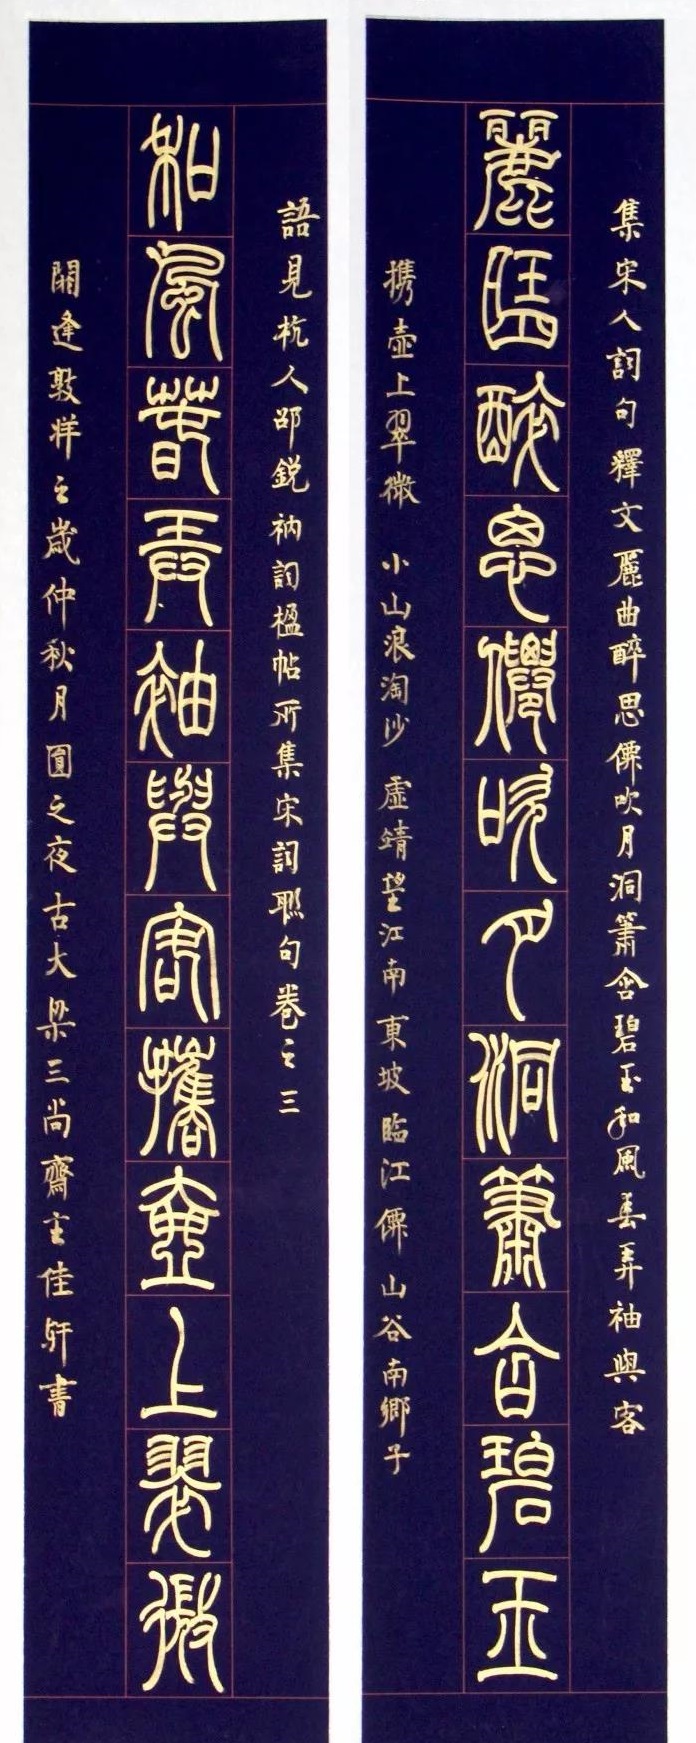 集宋人詞句 釋文 麗曲醉思僊吹月洞簫含碧玉和風春弄袖與客
麗曲醉思僊吹月洞簫含碧玉
携壺上翠微 小山浪淘沙 虛靖望江南 東坡臨江僊 山谷南鄉子
語見杭人邵銳衲詞楹帖所集宋詞聯句卷之三
和風春弄袖與客攜壺上翠微
閼逢敦牂之歲仲秋月圓之夜古大梁三尚齋主佳軒書